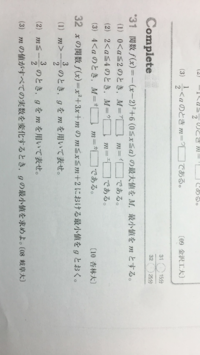 のとき m=□ である。 (09 金沢工大)
Complete
31 分
32 分
*31 関数 f(x)=-(x-2)²+6 (0≦x≦a) の最大値を M, 最小値を m とする。
(1) 0<a≦2 のとき M=□, m=□ である。
(2) 2<a≦4 のとき M=□, m=□ である。
(3) 4<a のとき, M=□, m=□ である。 (10 杏林大)
32 x の関数 f(x)=x²+3x+m の m≦x≦m+2 における最小値を g とおく。
(1) m>-3/2 のとき, g を m を用いて表せ。
(2) のとき, g を m を用いて表せ。
(3) m の値がすべての実数を変化するとき, g の最小値を求めよ。 (08 岐阜大)